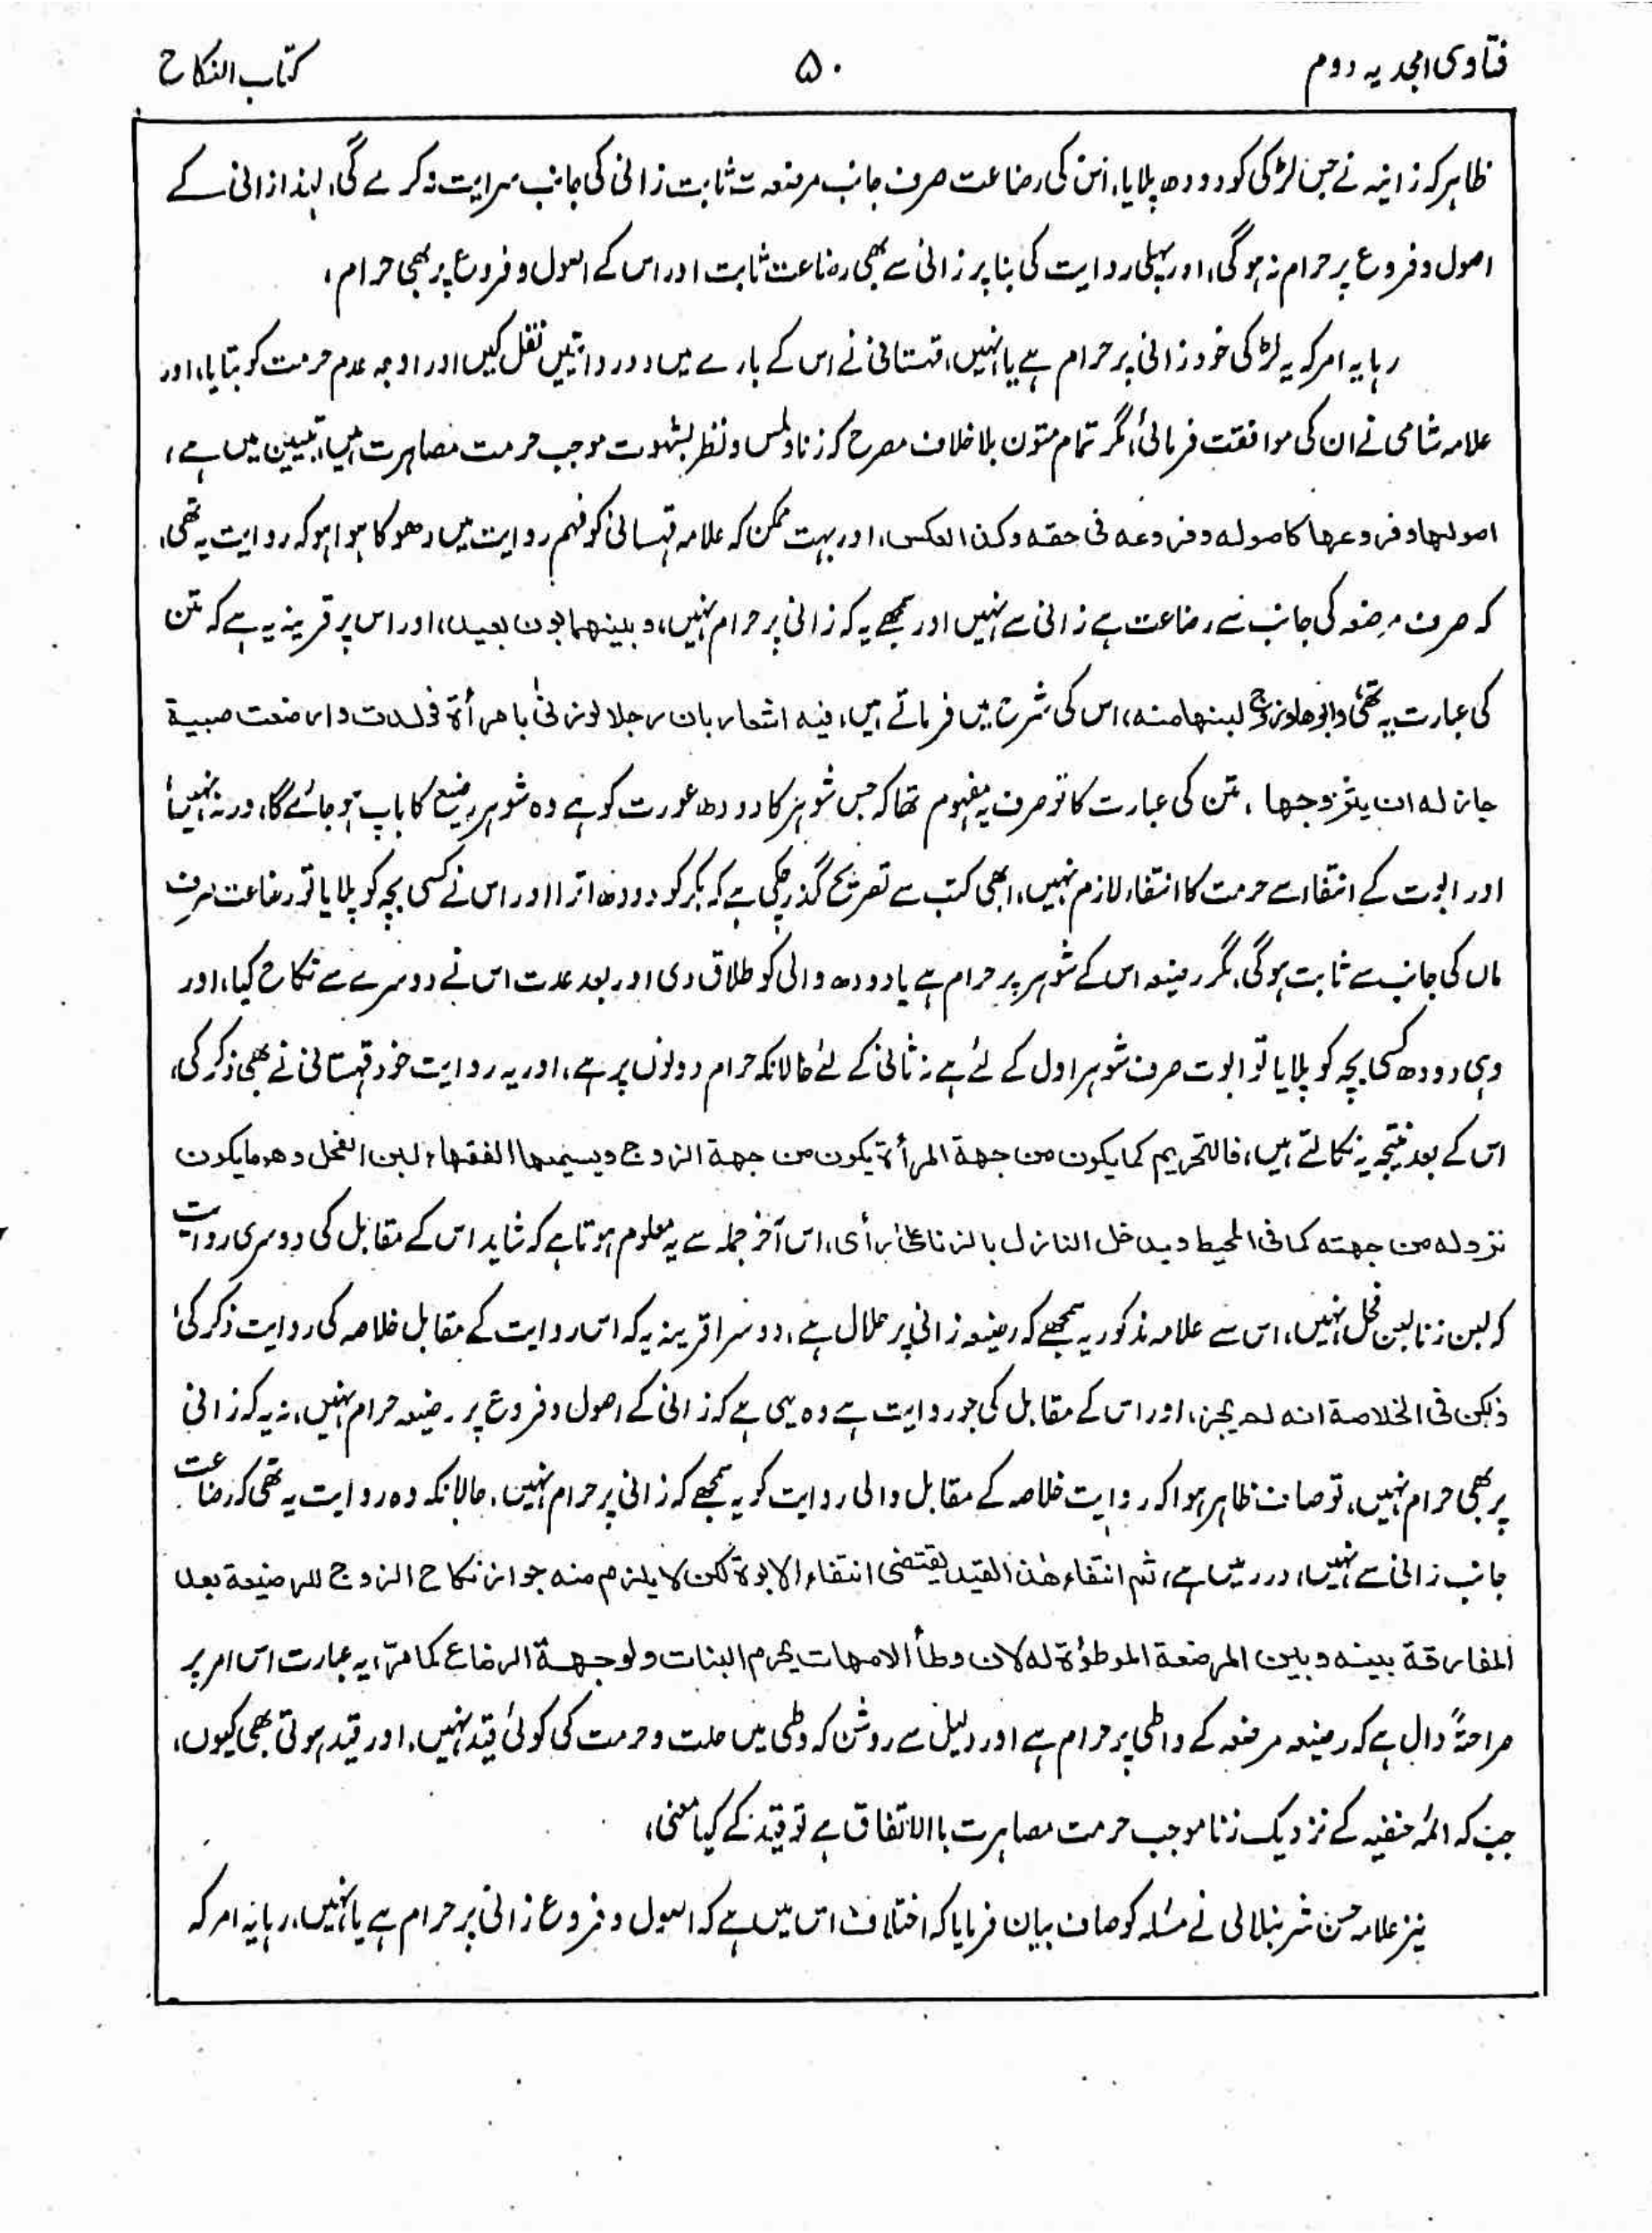 فتاوی امجدیہ دوم
۵۰
کتاب النکاح
ظاہر کہ زانیہ نے جس لڑکی کو دودھ پلایا، اس کی رضاعت صرف جانب مرضعہ ثابت زانی کی جانب سرایت نہ کرے گی، لہذا زانی کے
اصول و فروع پر حرام نہ ہوگی، اور پہلی روایت کی بنا پر زانی سے بھی رضاعت ثابت اور اس کے اصول و فروع پر بھی حرام،
رہا یہ امر کہ یہ لڑکی خود زانی پر حرام ہے یا نہیں، قہستانی نے اس کے بارے میں دو روایتیں نقل کیں اور اوجہ عدم حرمت کو بتایا، اور
علامہ شامی نے ان کی موافقت فرمائی، مگر تمام متون بلا خلاف مصرح کہ زنا و لمس و نظر بشہوت موجب حرمت مصاہرت ہیں، تبیین میں ہے،
اصولها و فروعها کاصوله و فروعه فی حقه و کذا العکس، اور بہت ممکن کہ علامہ قہستانی کو فہم روایت میں دھوکا ہوا ہو کہ روایت یہ تھی،
کہ صرف مرضعہ کی جانب سے رضاعت ہے زانی سے نہیں اور سمجھے یہ کہ زانی پر حرام نہیں، و بینهما بون بعید، اور اس پر قرینہ یہ ہے کہ متن
کی عبارت یہ تھی و ابوها زوج لبنها منه، اس کی شرح میں فرماتے ہیں، فیه اشعار بان رجلا لو زنی بامرأة فولدت و ارضعت صبیة
جاز له ان یتزوجها، متن کی عبارت کا تو صرف یہ مفہوم تھا کہ جس شوہر کا دودھ عورت کو ہے وہ شوہر رضیع کا باپ ہو جائے گا، ورنہ نہیں،
اور ابوت کے انتفاء سے حرمت کا انتفاء لازم نہیں، ابھی کتب سے تصریح گذر چکی ہے کہ بکر کو دودھ اترا اور اس نے کسی بچہ کو پلایا تو رضاعت صرف
ماں کی جانب سے ثابت ہوگی، مگر رضیعہ اس کے شوہر پر حرام ہے یا دودھ والی کو طلاق دی اور بعد عدت اس نے دوسرے سے نکاح کیا، اور
وہی دودھ کسی بچہ کو پلایا تو ابوت صرف شوہر اول کے لئے ہے نہ ثانی کے لئے حالانکہ حرام دونوں پر ہے، اور یہ روایت خود قہستانی نے بھی ذکر کی،
اس کے بعد نتیجہ یہ نکالتے ہیں، فالتحریم کما یکون من جهة المرأة یکون من جهة الزوج و یسمیها الفقهاء لبن الفحل و هو ما یکون
نزوله من جهته کما فی المحیط و یدخل النازل بالزنا علی رأی، اس آخر جملہ سے یہ معلوم ہوتا ہے کہ شاید اس کے مقابل کی دوسری روایت
کہ لبن زنا لبن فحل نہیں، اس سے علامہ مذکور یہ سمجھے کہ رضیعہ زانی پر حلال ہے، دوسرا قرینہ یہ کہ اس روایت کے مقابل خلاصہ کی روایت ذکر کی
لکن فی الخلاصة انه لم یجز، اور اس کے مقابل کی جو روایت ہے وہ یہی ہے کہ زانی کے اصول و فروع پر رضیعہ حرام نہیں، نہ یہ کہ زانی
پر بھی حرام نہیں، تو صاف ظاہر ہوا کہ روایت خلاصہ کے مقابل والی روایت کو یہ سمجھے کہ زانی پر حرام نہیں، حالانکہ وہ روایت یہ تھی کہ رضاعت
جانب زانی سے نہیں، درر میں ہے، ثم انتفاء هذا القید یقتضی انتفاء الابوة لکن لا یلزم منه جواز نکاح الزوج للرضیعة بعد
المفارقة بینه و بین المرضعة الموطوٴة له لان وطأ الامهات یحرم البنات و لو جهة الرضاع کما مر، یہ عبارت اس امر پر
صراحۃً دال ہے کہ رضیعہ مرضعہ کے واطی پر حرام ہے اور دلیل سے روشن کہ وطی میں حلت و حرمت کی کوئی قید نہیں، اور قید ہوتی بھی کیوں،
جب کہ ائمۂ حنفیہ کے نزدیک زنا موجب حرمت مصاہرت باالاتفاق ہے تو قید کے کیا معنی،
نیز علامہ حسن شرنبلالی نے مسئلہ کو صاف بیان فرمایا کہ اختلاف اس میں ہے کہ اصول و فروع زانی پر حرام ہے یا نہیں، رہا یہ امر کہ